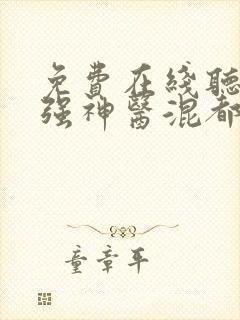 免費在綫聽
强神醫混都
童章平